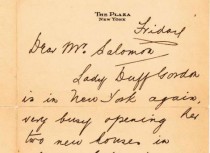 THE PLAZA
NEW YORK
Friday
Dear Mr. Salomon
Lady Duff Gordon
is in New York again,
very busy opening her
two new houses in